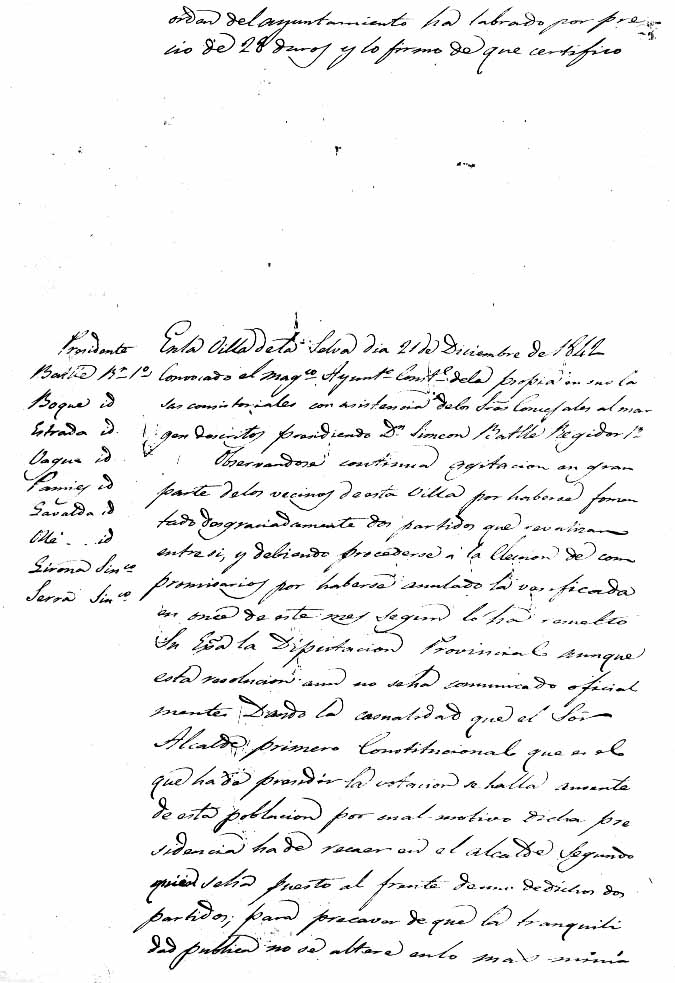 orden del ayuntamiento ha labrado por pre
cio de 28 duros y lo firmo de que certifico
Presidente
Batlle Rr. 1º
Boque id
Estrada id
Vaque id
Pamies id
Gavalda id
Ollé id
Girona Sinco
Serra Sinco
En la Villa de la Selva dia 21 de Diciembre de 1842
Convocado el magco Ayunto Constl dela propia en sus ca
sas consistoriales con asistencia delos Sres Concejales al mar
gen descritos presidiendo Dn Simeon Batlle Regidor 1º
Observandose continua agitacion en gran
parte delos vecinos de esta Villa por haberse fomen
tado desgraciadamente dos partidos que revalizan
entre si, y debiendo procederse a la Eleccion de com
promisarios por haberse anulado la verificada
en once de este mes segun lo ha resuelto
Su Exa la Diputacion Provincial aunque
esta resolucion aun no seha comunicado oficial
mente. Dando la casualidad que el Sor
Alcalde primero Constitucional que es el
que ha de presidir la votacion se halla ausente
de esta poblacion por cual motivo dicha pre
sidencia ha de recaer en el alcalde Segundo
quien seha puesto al frente de uno de dichos dos
partidos; para precaver de que la tranquili
dad publica no se altere en lo mas minimo